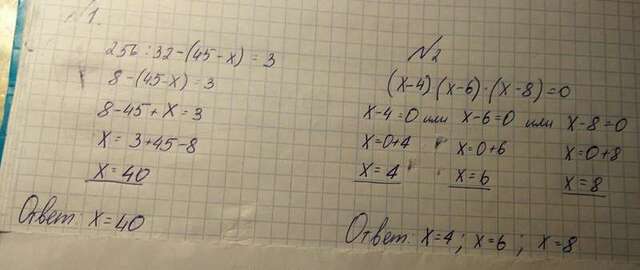 №1.
256:32-(45-x)=3
8-(45-x)=3
8-45+x=3
x=3+45-8
x=40
Ответ: x=40
№2
(x-4)·(x-6)·(x-8)=0
x-4=0 или x-6=0 или x-8=0
x=0+4 x=0+6 x=0+8
x=4 x=6 x=8
Ответ: x=4; x=6; x=8